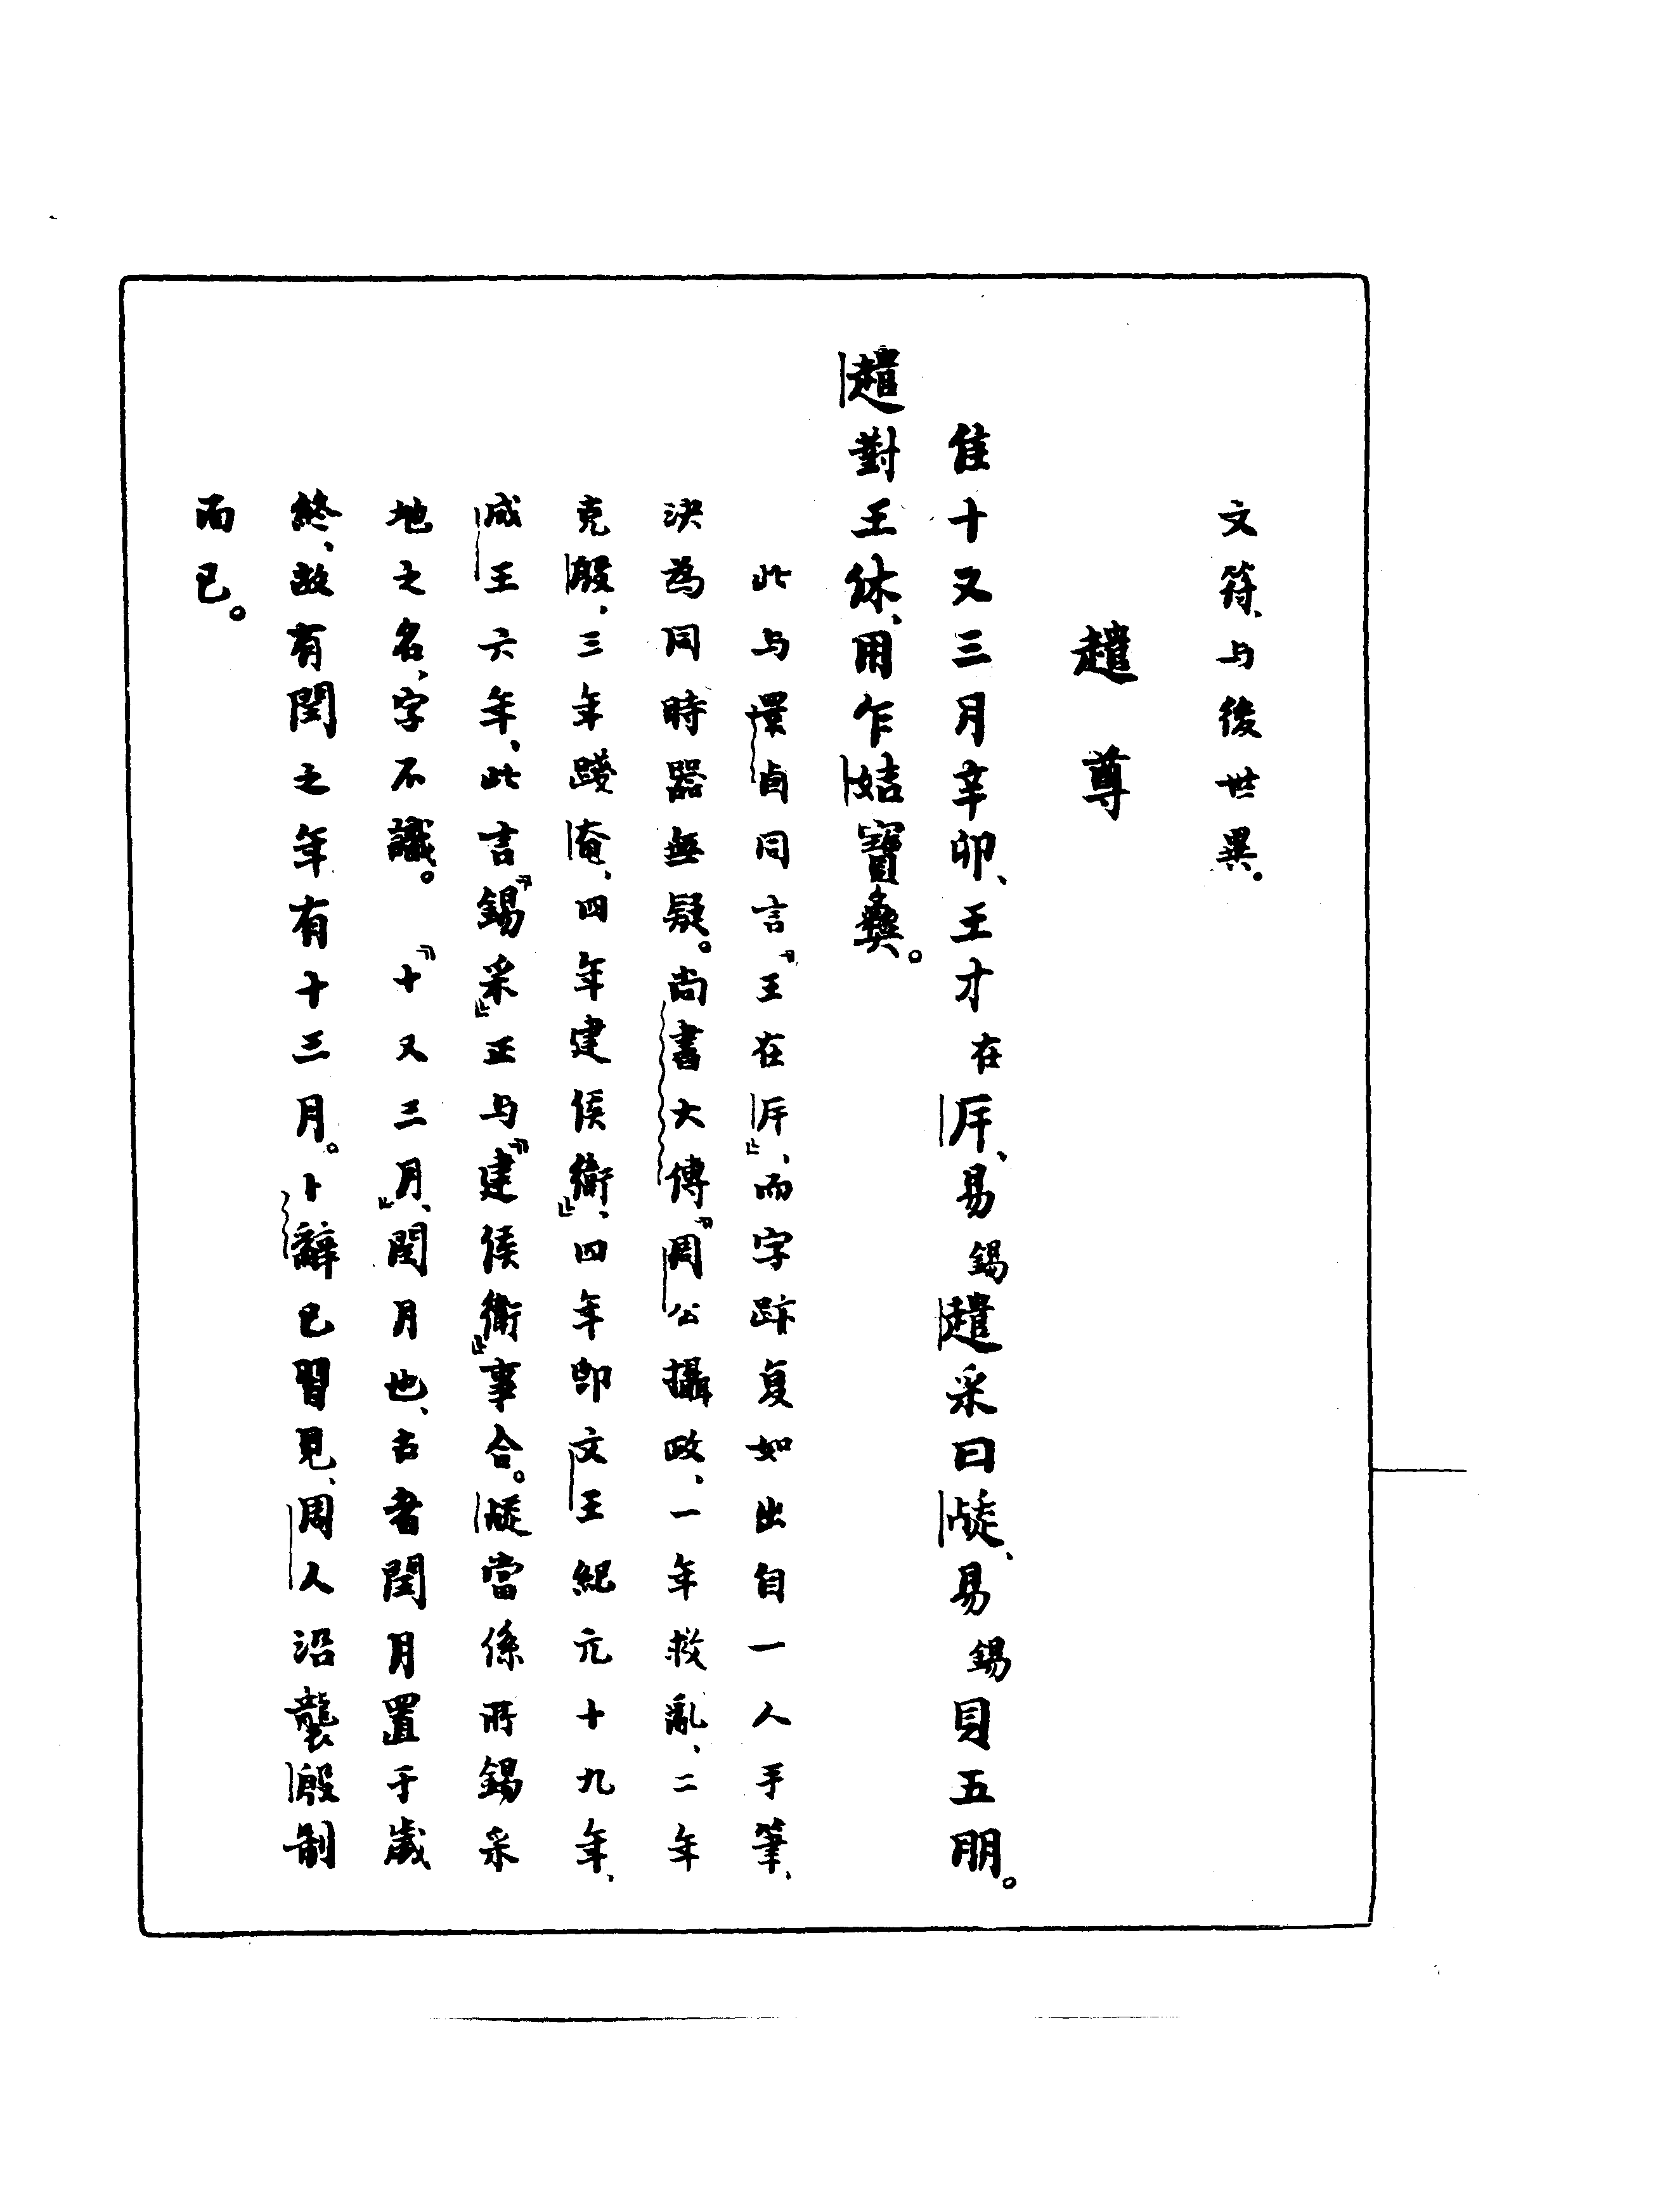 文符、与後世異。
趞尊
隹十又三月辛卯、王才在厈、易錫趞采曰𧻚、易錫貝五朋。
趞對王休、用乍姞寶彝。
此与睘卣同言『王在厈』、而字跡复如出自一人手筆、
決為同時器無疑。尚書大傳『周公攝政、一年救亂、二年
克殷、三年踐奄、四年建侯衛』、四年即文王紀元十九年、
成王六年、此言『錫采』正与『建侯衛』事合。當係所錫采
地之名、字不識。『十又三月』、閏月也、古者閏月置于歲
終、故有閏之年有十三月。卜辭已習見、周人沿襲殷制
而已。